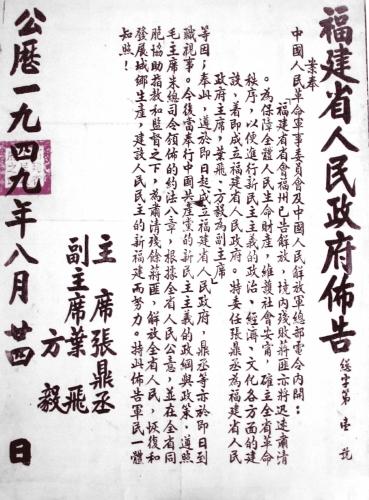 福建省人民政府佈告
總字第壹號
案奉
中國人民革命軍事委員會及中國人民解放軍總部電令內開：
「福建省省會福州已告解放，境內殘敗蔣匪亦將迅速肅清
。為保障全體人民生命財產，維護社會安寧，確立全省革命
秩序，以便進行新民主主義的政治、經濟、文化各方面的建
設、着即成立福建省人民政府。特委任張鼎丞為福建省人民
政府主席，葉飛、方毅為副主席」
等因；奉此，遵於即日起成立福建省人民政府，鼎丞等亦於即日到
職視事。今後當奉行中國共產黨的新民主主義的政綱與政策，遵照
毛主席朱總司令頒佈的約法八章，根據全省人民公意，並在全省同
胞協助指教和監督之下，為肅清殘餘蔣匪，解放全省人民，恢復和
發展城鄉生產，建設人民民主的新福建而努力。特此佈告軍民一體
知照！
主席張鼎丞
副主席葉飛
方毅
公曆一九四九年八月廿四日